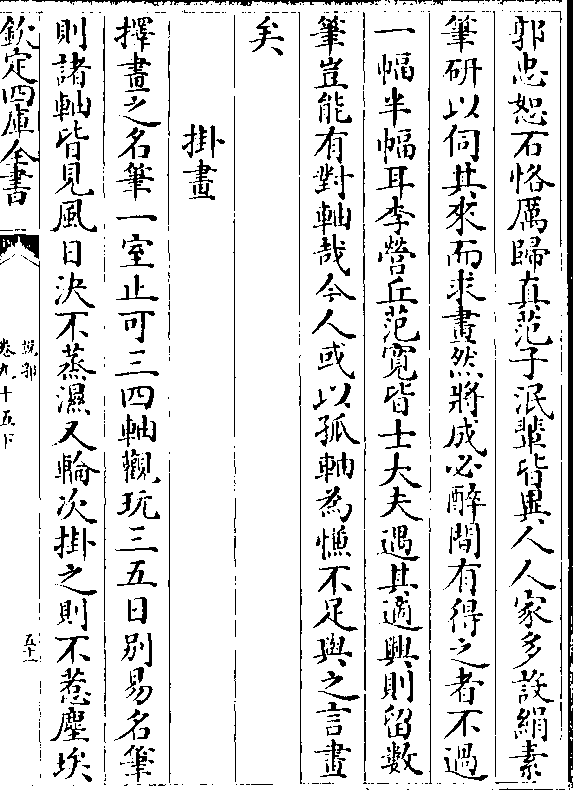 郭忠恕石恪厲歸真范子泯輩皆異人人家多設絹素
筆硏以伺其來而求畫然將成必醉間有得之者不過
一幅半幅耳李營丘范寛皆士大夫遇其適興則留數
筆豈能有對軸哉今人或以孤軸為慊不足與之言畫
矣
掛畫
擇畫之名筆一室止可三四軸觀玩三五日别易名筆
則諸軸皆見風日決不蒸濕又輪次掛之則不惹塵埃
欽定四庫全書
說郛
卷九十五下
五十一